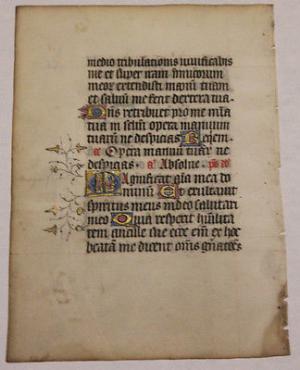 medio tribulationis vivificabis
me et super iram inimicorum
meor extendisti manū tuam
et salvū me fecit dextera tua.
Dn̄s retribuet pro me mīa
tua in sclm̄ opera manuum
tuarū ne despicias. Requiem.
an̄ Opera manuū tuar̄ ne
despicias. a Absolve. ps
Magnificat aīa mea do
minū. Et exultavit
spiritus meus in deo salutari
meo. Quia respexit hūilita
tem ancille sue ecce em̄ ex hoc
beatā me dicent om̄s gn̄atōes